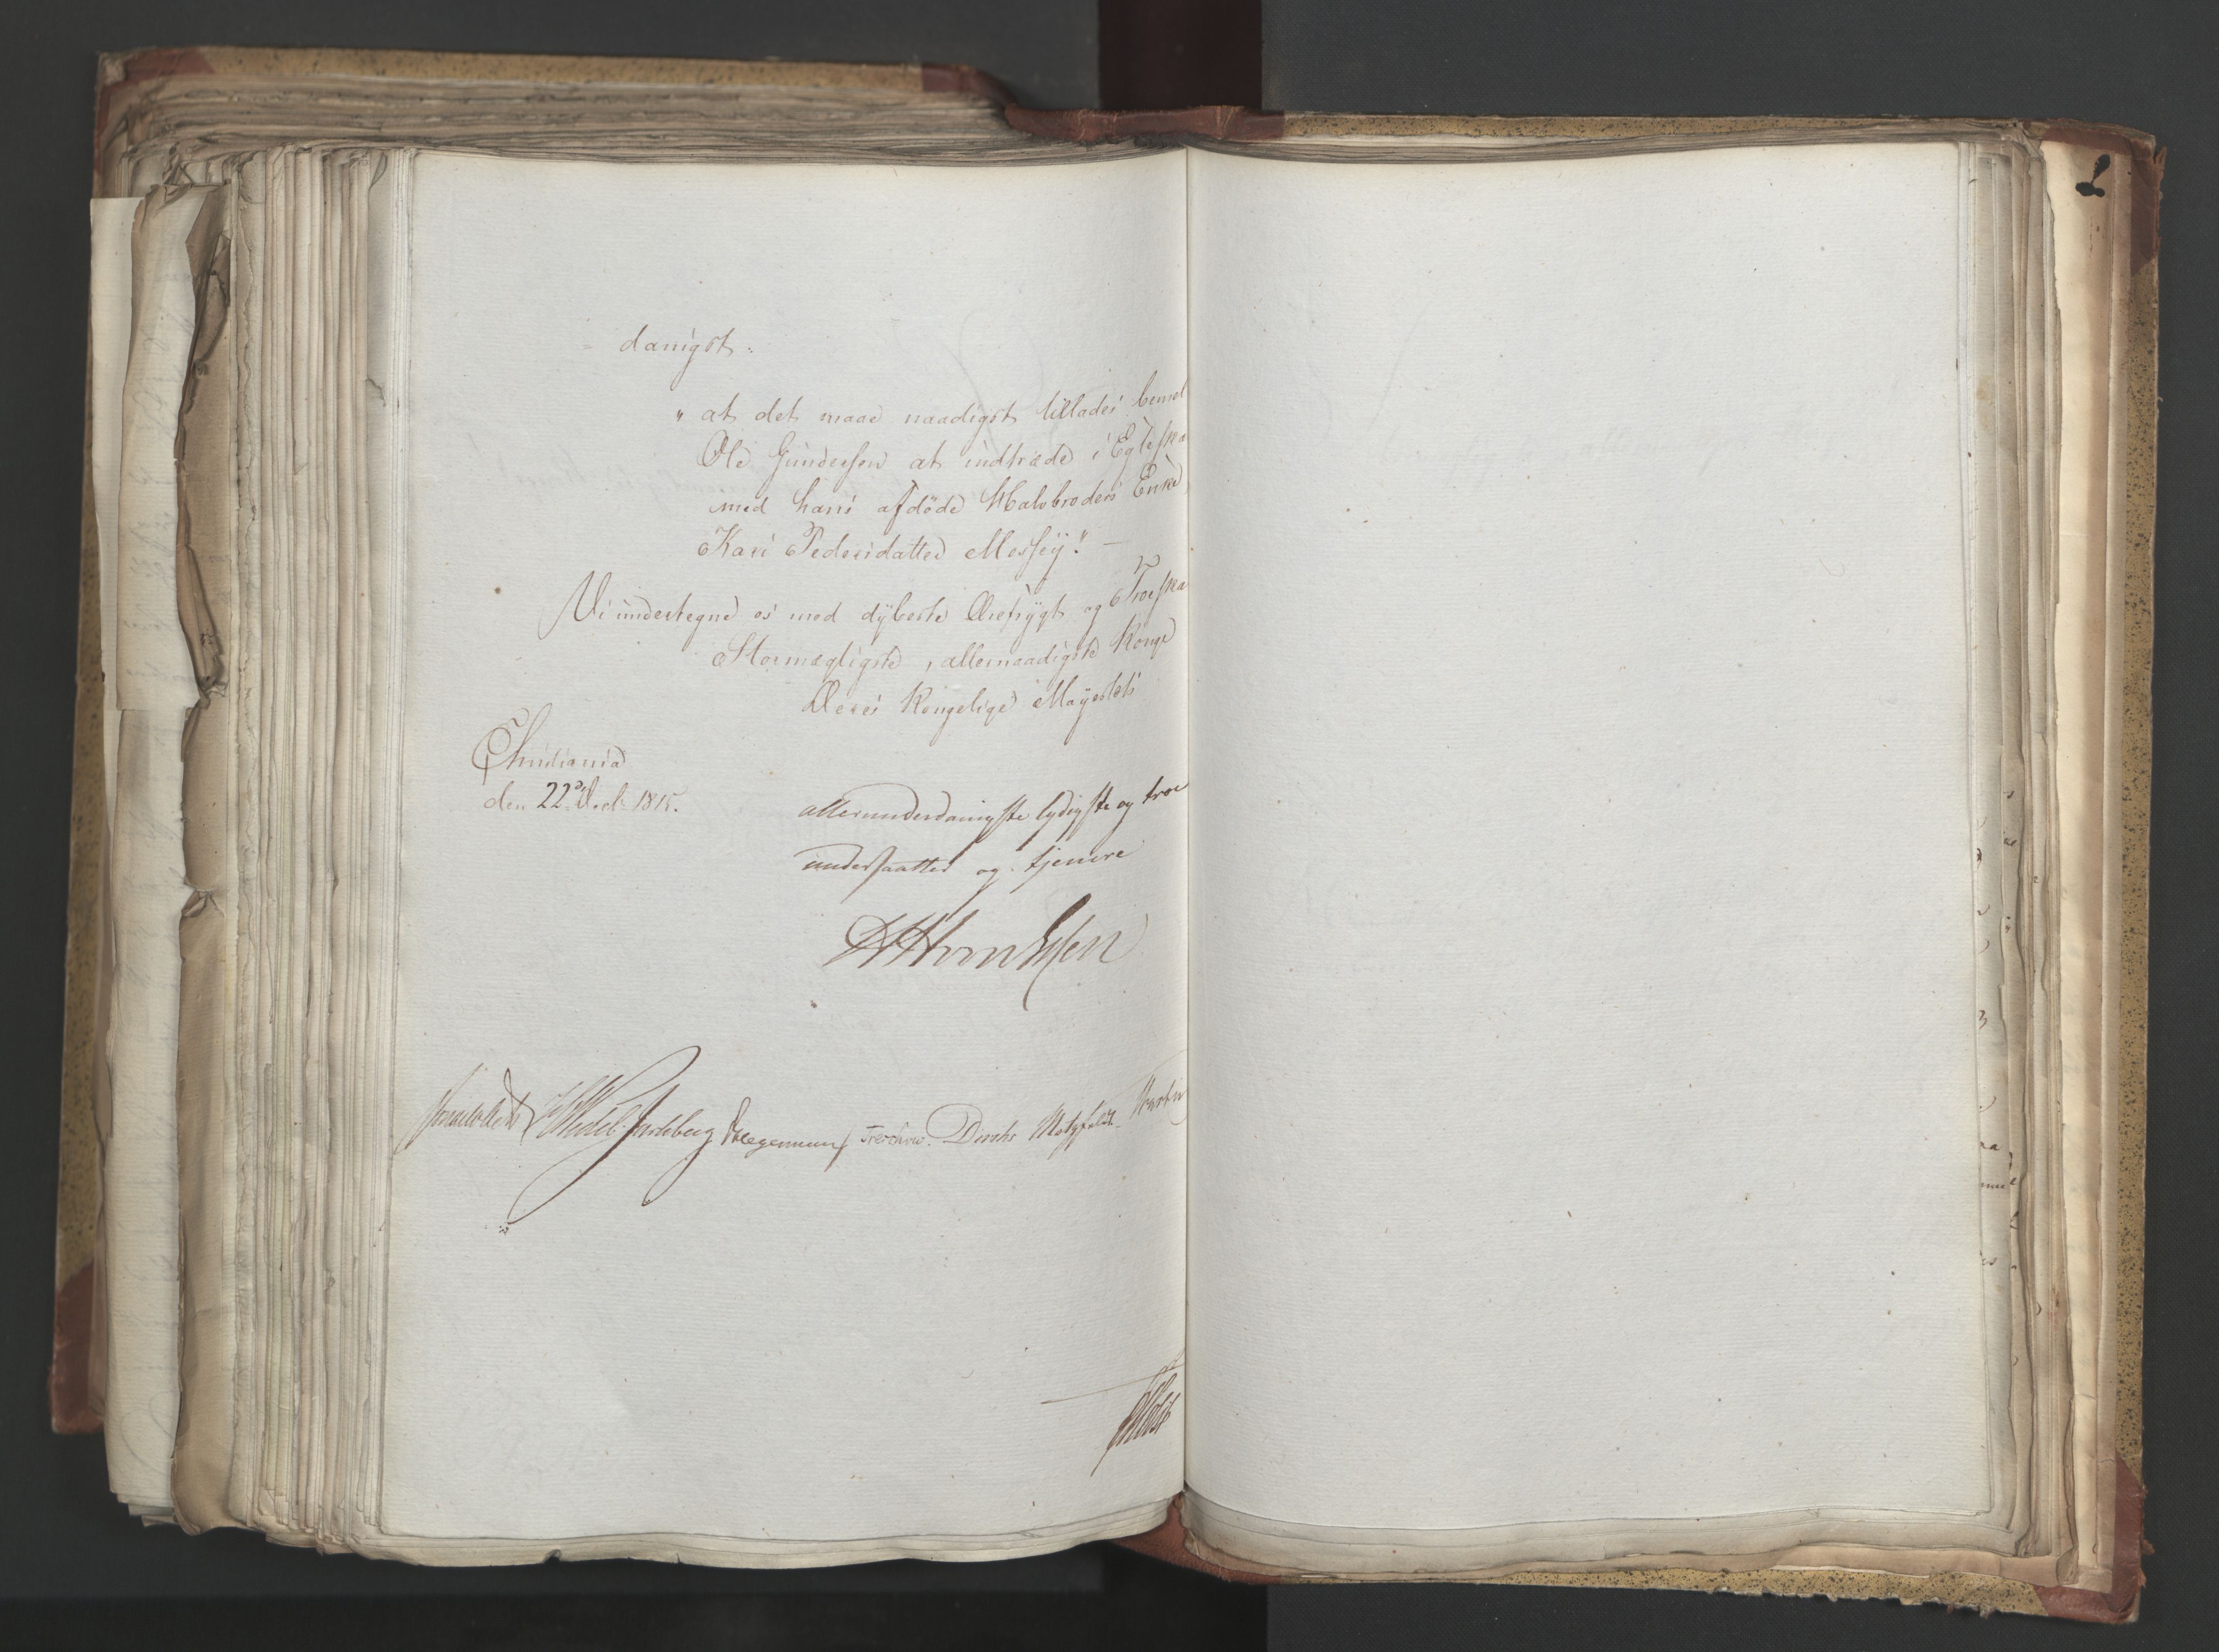 = danigst:
" at det maae naadigst tillades bemel
Ole Gundersen at indtræde i Egteska
med hans afdøde Halvbroders Enke
Kari Pedersdatter Messey." —
Vi undertegne os med dybeste Ærefrygt og Troeska
Stormægtigste, allernaadigste Konge
Deres Kongelige Mayestets
Christiania
den 22d Decbr 1815.
allerunderdanigste lydigste og troe
undersaatter og tjenere
Sommerhielm Wedel Jarlsberg Hegermann Treschow. Diriks Motzfeldt
Holst